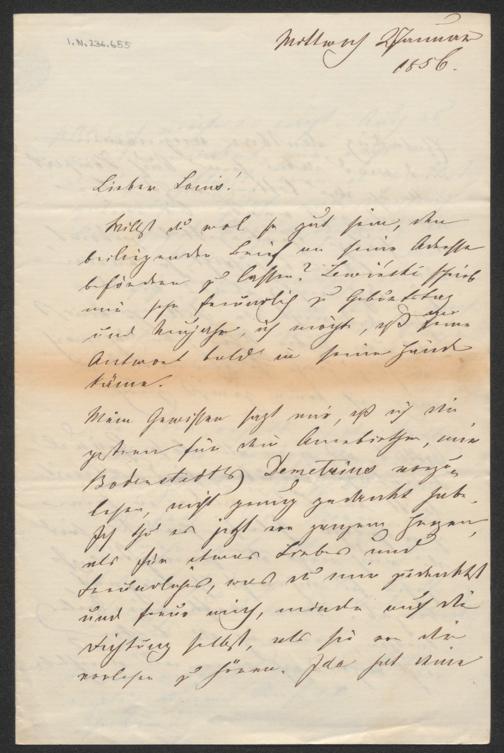 I.N. 236.655
Mittwoch 2 Januar
1856.
Lieber Louis!
Willst du wol so gut sein, den
beiliegenden Brief an seine Adresse
befördern zu lassen? Lewinski schrieb
mir sehr freundlich zu Geburtstag
und Neujahr, ich möchte, daß meine
Antwort bald in seine Hände
käme.
Mein Gewissen sagt mir, daß ich dir
gestern für dein Anerbieten, mir
Bodenstedts Demetrius vorzu-
lesen, nicht genug gedankt habe.
Ich thu es jetzt von ganzem Herzen,
als für etwas Liebes und
Freundliches, was du mir zugedacht
und freue mich, minder auf die
Dichtung selbst, als sie von dir
vorlesen zu hören. Ida hat eine